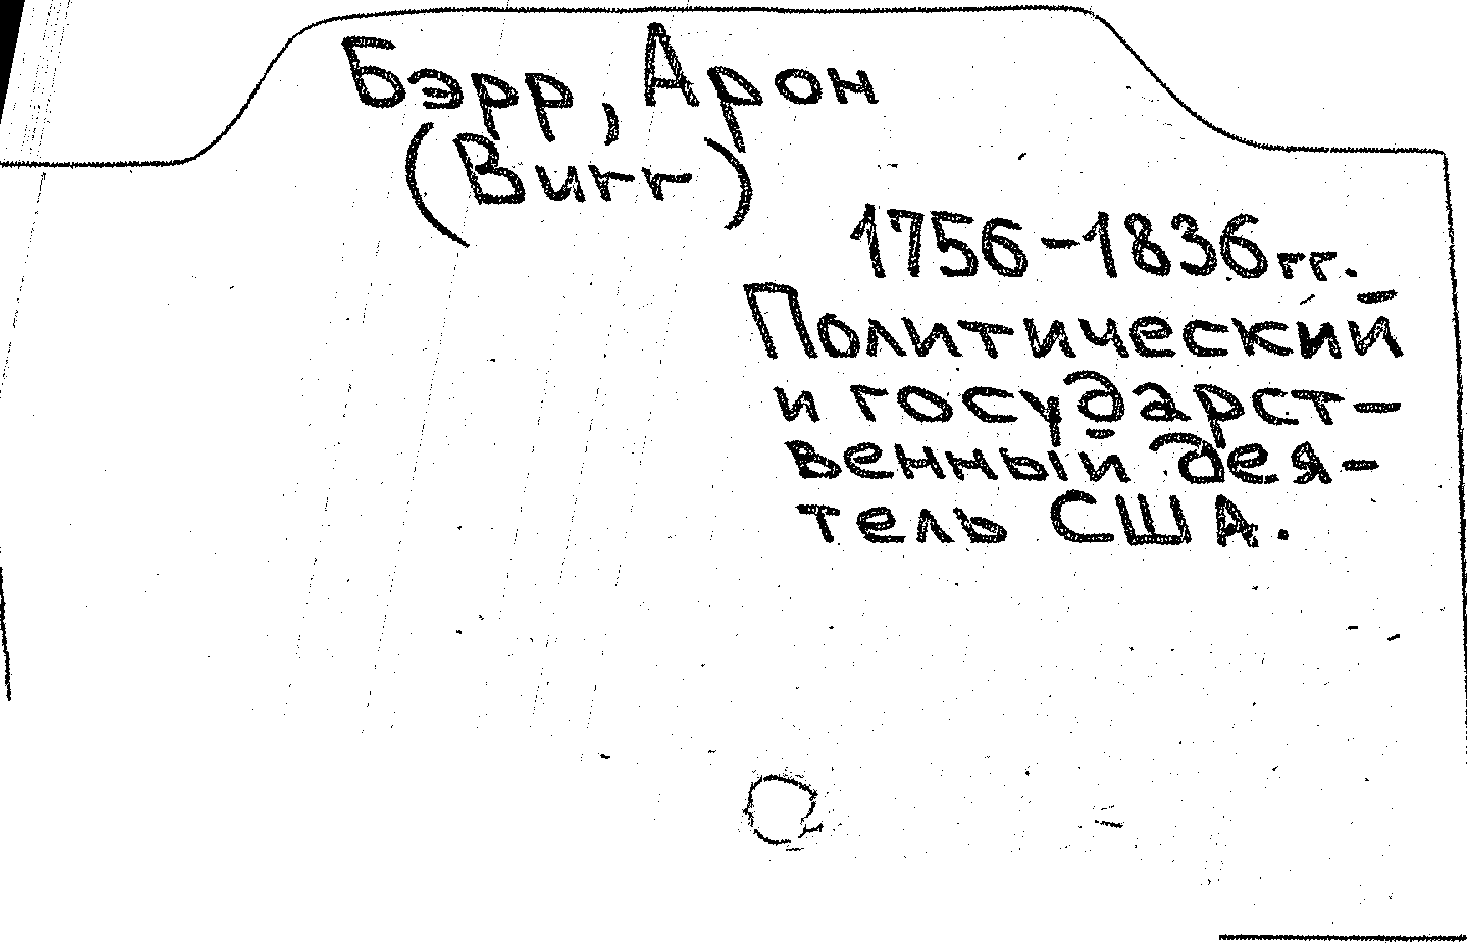 Бэрр, Арон
(Burr)
1756-1836гг.
Политический
и государст-
венный дея-
тель США.